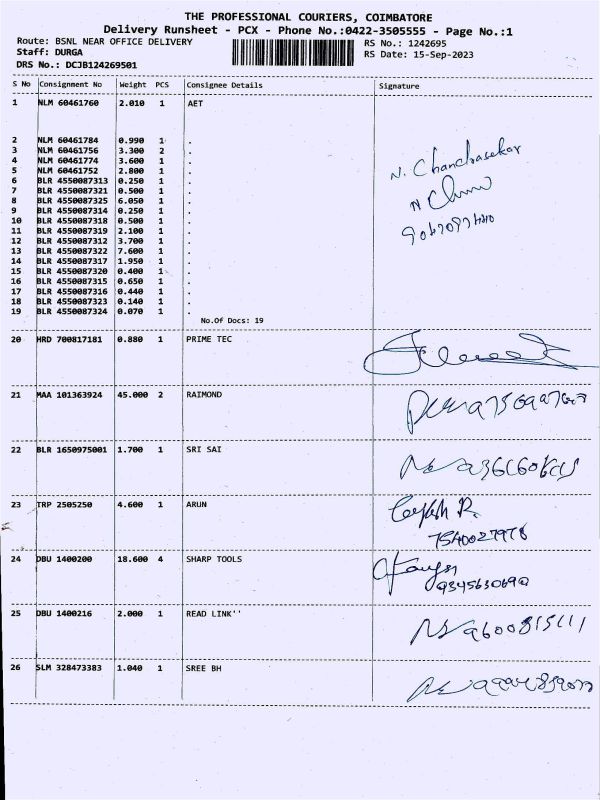 THE PROFESSIONAL COURIERS, COIMBATORE
Delivery Runsheet - PCX - Phone No.:0422-3505555 - Page No.:1
Route: BSNL NEAR OFFICE DELIVERY RS No.: 1242695
Staff: DURGA RS Date: 15-Sep-2023
DRS No.: DCJB124269501
S No Consignment No Weight PCS Consignee Details Signature
1 NLM 60461760 2.010 1 AET
2 NLM 60461784 0.990 1 .
3 NLM 60461756 3.300 2 .
4 NLM 60461774 3.600 1 .
5 NLM 60461752 2.800 1 .
6 BLR 4550087313 0.250 1 .
7 BLR 4550087321 0.500 1 .
8 BLR 4550087325 6.050 1 .
9 BLR 4550087314 0.250 1 .
10 BLR 4550087318 0.500 1 .
11 BLR 4550087319 2.100 1 .
12 BLR 4550087312 3.700 1 .
13 BLR 4550087322 7.600 1 .
14 BLR 4550087317 1.950 1 .
15 BLR 4550087320 0.400 1 .
16 BLR 4550087315 0.650 1 .
17 BLR 4550087316 0.440 1 .
18 BLR 4550087323 0.140 1 .
19 BLR 4550087324 0.070 1 .
N. Chandrasekar
No.Of Docs: 19
20 HRD 700817181 0.880 1 PRIME TEC
21 MAA 101363924 45.000 2 RAIMOND
22 BLR 1650975001 1.700 1 SRI SAI
23 TRP 2505250 4.600 1 ARUN
7540027978
24 DBU 1400200 18.600 4 SHARP TOOLS
9345630690
25 DBU 1400216 2.000 1 READ LINK''
9600815111
26 SLM 328473383 1.040 1 SREE BH